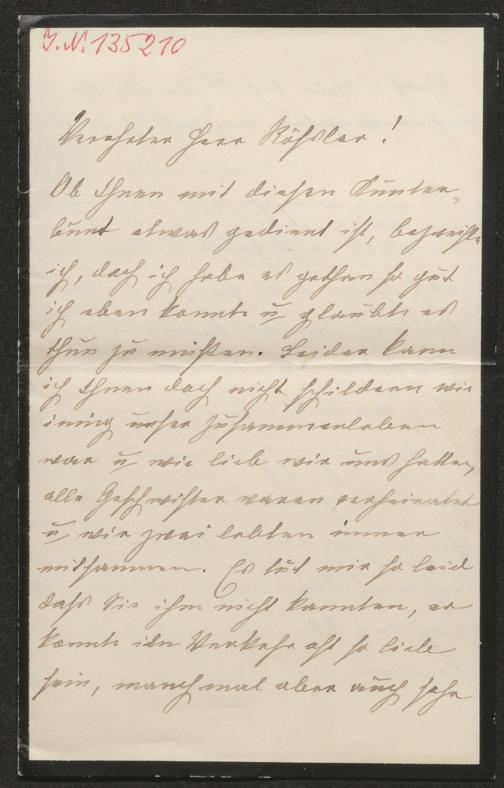 J. N. 135210
Verehrter Herr Rößler!
Ob Ihnen mit diesen Kunter-
bunt etwas gedient ist, bezweifle
ich, doch ich habe es gethan so gut
ich eben konnte u glaubte es
thun zu müßen. Leider kann
ich Ihnen doch nicht schildern wie
innig unser Zusammenleben
war u wie lieb wir uns hatten,
alle Geschwister waren verheiratet
u wir zwei lebten immer
mitsammen. Es tut mir so leid
daß Sie ihm nicht kannten, er
konnte im Verkehr oft so lieb
sein, manchmal aber auch sehr